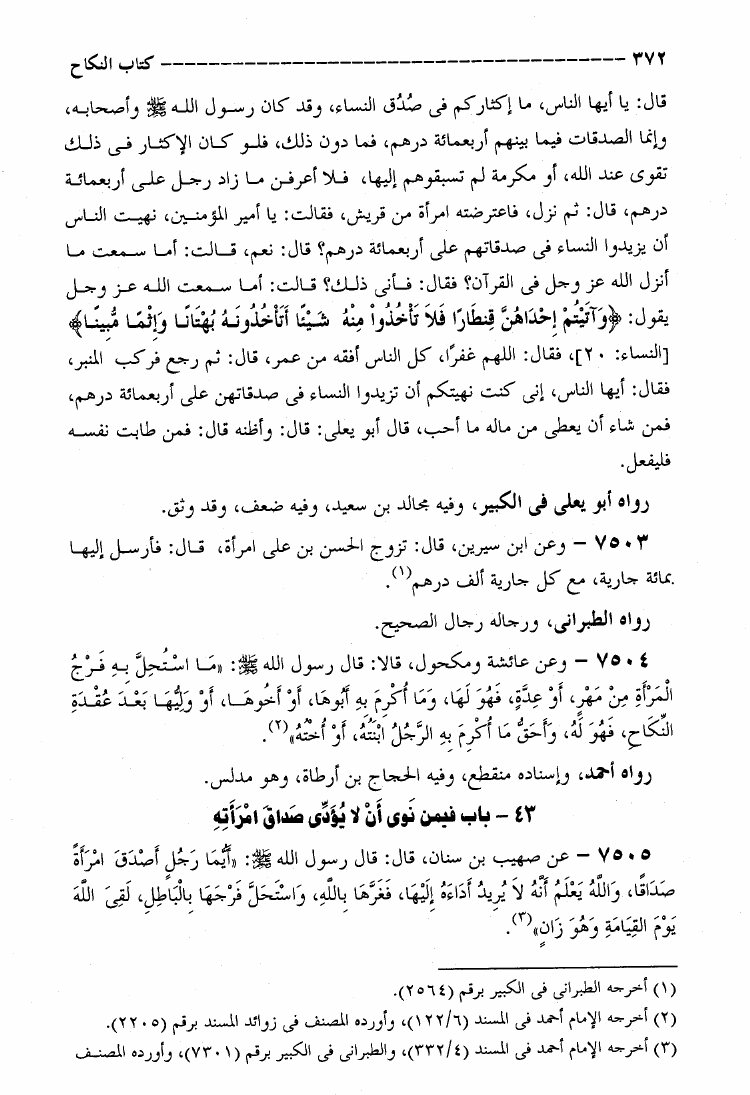 ٣٧٢ ــــــــــــــــــــــــــــــــــــــــــــــــــــــــــــــ كتاب النكاح
قال: يا أيها الناس، ما إكثاركم فى صُدُق النساء، وقد كان رسول الله ﷺ وأصحابه،
وإنما الصدقات فيما بينهم أربعمائة درهم، فما دون ذلك، فلو كان الإكثار فى ذلك
تقوى عند الله، أو مكرمة لم تسبقوهم إليها، فلا أعرفن ما زاد رجل على أربعمائة
درهم، قال: ثم نزل، فاعترضته امرأة من قريش، فقالت: يا أمير المؤمنين، نهيت الناس
أن يزيدوا النساء فى صدقاتهم على أربعمائة درهم؟ قال: نعم، قالت: أما سمعت ما
أنزل الله عز وجل فى القرآن؟ فقال: فأنى ذلك؟ قالت: أما سمعت الله عز وجل
يقول: ﴿وَآتَيْتُمْ إِحْدَاهُنَّ قِنطَارًا فَلاَ تَأْخُذُواْ مِنْهُ شَيْئًا أَتَأْخُذُونَهُ بُهْتَانًا وَإِثْمًا مُّبِينًا﴾
[النساء: ٢٠]، فقال: اللهم غفرًا، كل الناس أفقه من عمر، قال: ثم رجع فركب المنبر،
فقال: أيها الناس، إنى كنت نهيتكم أن تزيدوا النساء فى صدقاتهن على أربعمائة درهم،
فمن شاء أن يعطى من ماله ما أحب، قال أبو يعلى: قال: وأظنه قال: فمن طابت نفسه
فليفعل.
رواه أبو يعلى فى الكبير، وفيه مجالد بن سعيد، وفيه ضعف، وقد وثق.
٧٥٠٣ – وعن ابن سيرين، قال: تزوج الحسن بن على امرأة، قال: فأرسل إليها
بمائة جارية، مع كل جارية ألف درهم(١).
رواه الطبرانى، ورجاله رجال الصحيح.
٧٥٠٤ – وعن عائشة ومكحول، قالا: قال رسول الله ﷺ: «مَا اسْتُحِلَّ بِهِ فَرْجُ
الْمَرْأَةِ مِنْ مَهْرٍ، أَوْ عِدَّةٍ، فَهُوَ لَهَا، وَمَا أُكْرِمَ بِهِ أَبُوهَا، أَوْ أَخُوهَا، أَوْ وَلِيُّهَا بَعْدَ عُقْدَةِ
النِّكَاحِ، فَهُوَ لَهُ، وَأَحَقُّ مَا أُكْرِمَ بِهِ الرَّجُلُ ابْنَتُهُ، أَوْ أُخْتُهُ»(٢).
رواه أحمد، وإسناده منقطع، وفيه الحجاج بن أرطاة، وهو مدلس.
٤٣ – باب فيمن نَوى أَنْ لا يُؤَدِّى صَداقَ امْرَأَتِهِ
٧٥٠٥ – عن صهيب بن سنان، قال: قال رسول الله ﷺ: «أَيُّمَا رَجُلٍ أَصْدَقَ امْرَأَةً
صَدَاقًا، وَاللَّهُ يَعْلَمُ أَنَّهُ لاَ يُرِيدُ أَدَاءَهُ إِلَيْهَا، فَغَرَّهَا بِاللَّهِ، وَاسْتَحَلَّ فَرْجَهَا بِالْبَاطِلِ، لَقِىَ اللَّهَ
يَوْمَ القِيَامَةِ وَهُوَ زَانٍ»(٣).
(١) أخرجه الطبرانى فى الكبير برقم (٢٥٦٤).
(٢) أخرجه الإمام أحمد فى المسند (١٢٢/٦)، وأورده المصنف فى زوائد المسند برقم (٢٢٠٥).
(٣) أخرجه الإمام أحمد فى المسند (٣٣٢/٤)، والطبرانى فى الكبير برقم (٧٣٠١)، وأورده المصنف